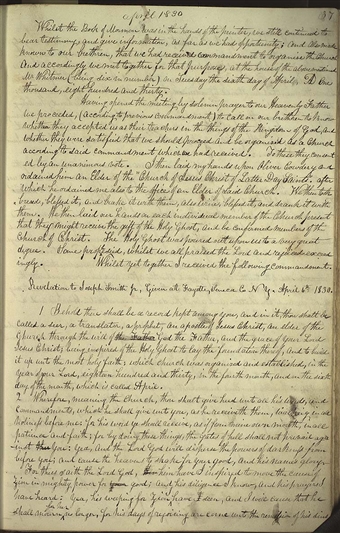 April 6 1830
37
Whilst the Book of Mormon was in the hands of the printer, we still continued to
bear testimony, and give information, as far as we had opportunity; and also made
known to our brethren, that we had received commandment to organize the Church
And accordingly we met together for that purpose, at the house of the
Mr Whitmer (being six in number) on Tuesday the sixth day of April, AD One
thousand, eight hundred and thirty.
Having opened the meeting by solemn prayer to our Heavenly Father
we proceeded, (according to previous commandment) to call on our brethren to know
whether they accepted us as their teachers in the things of the Kingdom of God, and
whether they were satisfied that we should proceed and be organized as a Church
according to said commandment which we had received. To these they consent
ed by an unanimous vote. I then laid my hands upon Oliver Cowdery and
ordained him an Elder of the "Church of Jesus Christ of Latter Day Saints" after
which he ordained me also to the office of an Elder of said Church. We then took
bread, blessed it, and brake it with them, also wine, blessed it, and drank it with
them. We then laid our hands on each individual member of the Church present
that they might receive the gift of the Holy Ghost, and be confirmed members of the
Church of Christ. The Holy Ghost was poured out upon us to a very great
degree. Some prophesied, whilst we all praised the Lord and rejoiced exceed
ingly. Whilst yet together I received the following commandment.
Revelation to Joseph Smith Jr, Given at Fayette, Seneca Co N. Y. April 6th 1830.
1 Behold there shall be a record kept among you, and in it, thou shalt be
called a seer, a translator, a prophet, an apostle of Jesus Christ, an elder of the
Church through the will of God the Father, and the grace of your Lord
Jesus Christ; being inspired of the Holy Ghost to lay the foundation thereof, and to build
it up unto the most holy faith; which church was organized and established, in the
year of your Lord, eighteen hundred and thirty, in the fourth month, and on the sixth
day of the month, which is called April.
2 Wherefore, meaning the church, thou shalt give heed unto all his words, and
commandments, which he shall give unto you, as he receiveth them, walking in all
holiness before me: for his word ye shall receive, as if from mine own mouth, in all
patience and faith; for by doing these things, the gates of hell shall not prevail aga
inst you: Yea, and the Lord God will disperse the powers of darkness from
before you; and cause the heavens to shake for your good, and his name's glory.
For thus saith the Lord God, him have I inspired to move the cause of
Zion in mighty power for good; and his diligence I know, and his prayers I
have heard: Yea, his weeping for Zion I have seen, and I will cause that he
shall mourn for her no longer, for his days of rejoicing are come unto the remission of his sins